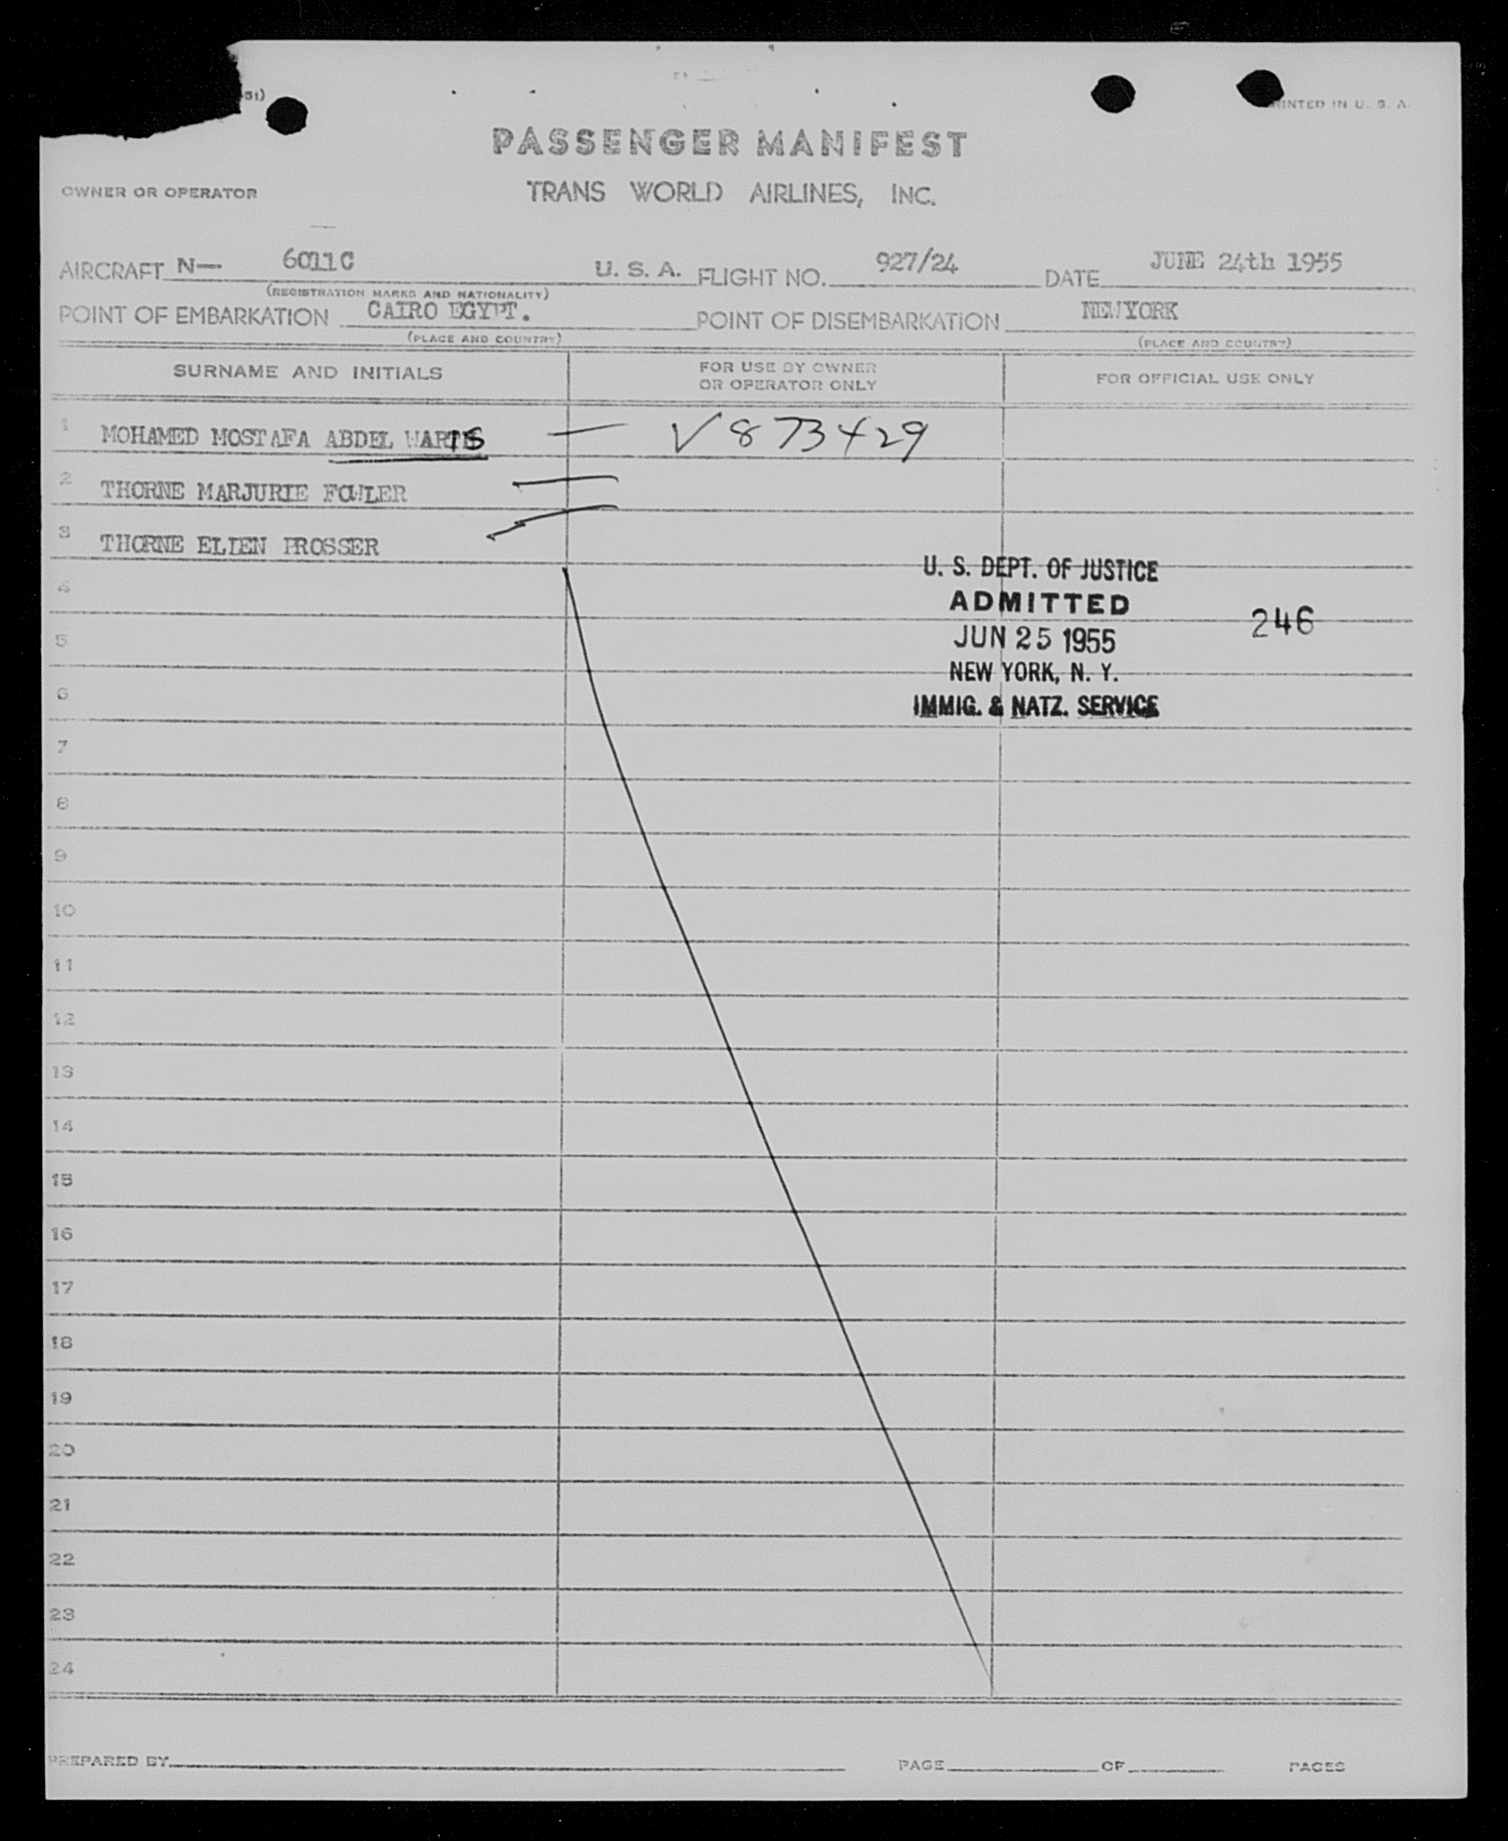 51)
PRINTED IN U. S. A.
PASSENGER MANIFEST
OWNER OR OPERATOR
TRANS WORLD AIRLINES, INC.
AIRCRAFT N— 6011C U. S. A. FLIGHT NO. 927/24 DATE JUNE 24th 1955
(REGISTRATION MARKS AND NATIONALITY)
POINT OF EMBARKATION CAIRO EGYPT. POINT OF DISEMBARKATION NEWYORK
(PLACE AND COUNTRY) (PLACE AND COUNTRY)
SURNAME AND INITIALS FOR USE BY OWNER OR OPERATOR ONLY FOR OFFICIAL USE ONLY
1 MOHAMED MOSTAFA ABDEL — V873429
2 THORNE MARJURIE FOWLER —
3 THORNE ELIEN PROSSER
U. S. DEPT. OF JUSTICE
4
ADMITTED 246
5 JUN 25 1955
NEW YORK, N. Y.
6
IMMIG. & NATZ. SERVICE
7
8
9
10
11
12
13
14
15
16
17
18
19
20
21
22
23
24
PREPARED BY PAGE OF PAGES